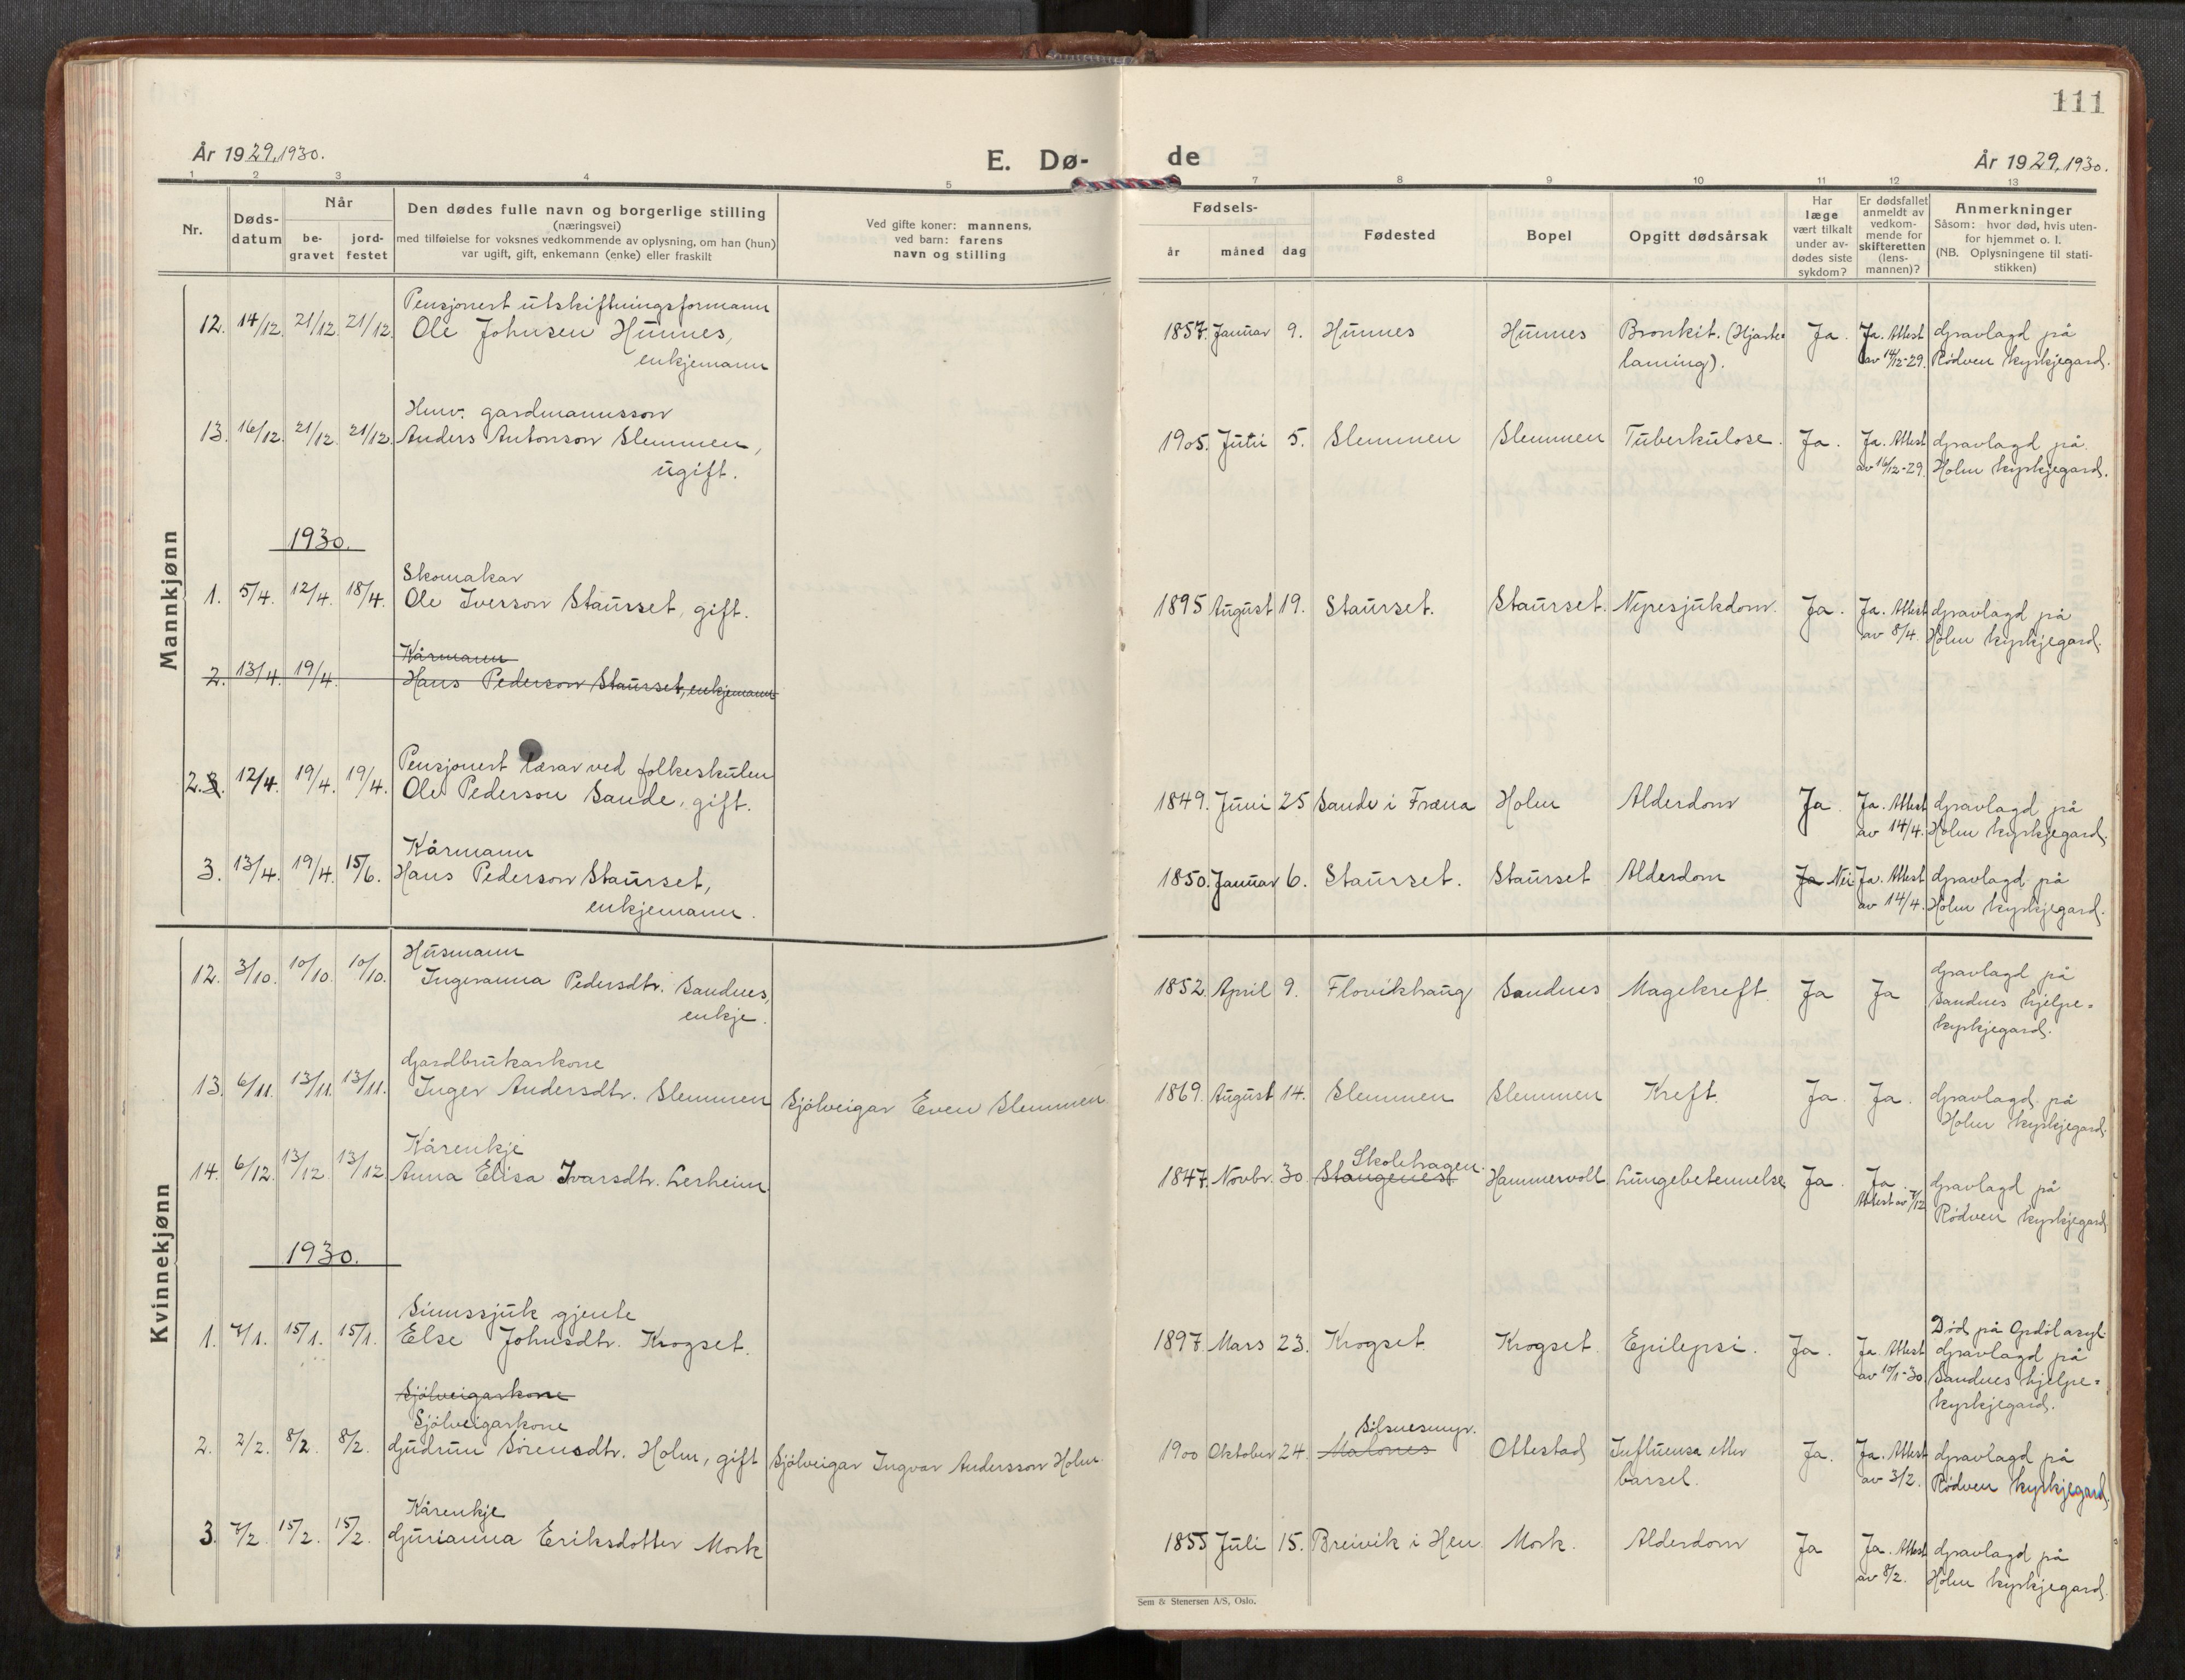 111
År 1929, 1930.
E. Dø-
de
År 1929, 1930.
1 2 3 4 5 7 8 9 10 11 12 13
Nr.
Døds-
datum
Når
be-
gravet
jord-
festet
Den dødes fulle navn og borgerlige stilling
(næringsvei)
med tilføielse for voksnes vedkommende av oplysning, om han (hun)
var ugift, gift, enkemann (enke) eller fraskilt
Ved gifte koner: mannens,
ved barn: farens
navn og stilling
Fødsels-
år måned dag
Fødested
Bopel
Opgitt dødsårsak
Har
læge
vært tilkalt
under av-
dødes siste
sykdom?
Er dødsfallet
anmeldt av
vedkom-
mende for
skifteretten
(lens-
mannen)?
Anmerkninger
Såsom: hvor død, hvis uten-
for hjemmet o. l.
(NB. Oplysningene til stati-
stikken)
Mannkjønn
Pensjonert utskiftningsformann
12. 14/12. 21/12. 21/12. Ole Johnsen Hunnes, 1857. Januar 9. Hunnes Hunnes Bronkit. (Hjarte Ja. Ja. Attest Gravlagd på
enkjemann laming). av 14/12-29. Rødven kyrkjegard.
Huv. gardmannsson
13. 16/12. 21/12. 21/12. Anders Antonson Slemmen, 1905. Juli 5. Slemmen Slemmen Tuberkulose. Ja. Ja. Attest Gravlagd på
ugift. av 16/12-29. Holm kyrkjegard.
1930.
Skomakar
1. 5/4. 12/4. 18/4. Ole Iverson Staurset, gift. 1895 August 19. Staurset. Staurset. Nyresjukdom. Ja. Ja. Attest Gravlagd på
av 8/4. Holm kyrkjegard.
Kårmann
2. 13/4. 19/4. Hans Pederson Staurset, enkjemann
Pensjonert lærar ved folkeskulen
2. 3. 12/4. 19/4. 19/4. Ole Pederson Sande, gift. 1849. Juni 25 Sande i Fræna Holm Alderdom Ja. Ja. Attest Gravlagd på
av 14/4. Holm kyrkjegard.
Kårmann
3. 13/4. 19/4. 15/6. Hans Pederson Staurset, 1850. Januar 6. Staurset. Staurset Alderdom Ja Nei Ja. Attest Gravlagd på
enkjemann. av 14/4. Holm kyrkjegard.
Kvinnekjønn
Husmann
12. 3/10. 10/10. 10/10. Ingeranna Pedersdtr. Sandnes, 1852. April 9. Flovikhaug Sandnes Magekreft. Ja Ja Gravlagd på
enkje. Sandnes hjelpe-
kyrkjegard.
Gardbrukarkone
13. 6/11. 13/11. 13/11. Inger Andersdtr. Slemmen Sjölveigar Even Slemmen 1869. August 14. Slemmen Slemmen Kreft. Ja. Ja. Gravlagd på
Holm kyrkjegard.
Kårenkje
14. 6/12. 13/12. 13/12. Anna Elisa Ivarsdtr. Lerheim. 1847. Novbr. 30. Stangenes Skolehagen. Hammervoll Lungebetennelse Ja. Ja. Gravlagd på
Attest av 7/12 Rødven kyrkjegard
1930.
Sinnssjuk gjente
1. 7/1. 15/1. 15/1. Else Johnsdtr. Krogset. 1897. Mars 23. Krogset. Krogset. Epilepsi. Ja. Ja. Attest Død på Opdöl asyl.
av 10/1-30 Gravlagd på
Sandnes hjelpe-
kyrkjegard.
Sjölveigarkone
Sjölveigarkone
2. 2/2. 8/2. 8/2. Gudrun Sörensdtr. Holm, gift Sjölveigar Ingvar Andersson Holm. 1900 Oktober 24. Malones Sölsnesmyr. Ottestad Influensa etter Ja. Ja. Attest Gravlagd på
barsel. av 3/2. Rødven kyrkjegard.
Kårenkje
3. 7/2. 15/2. 15/2. Gurianna Eriksdotter Mork 1855 Juli 15. Breivik i Hen Mork. Alderdom Ja Ja. Attest Gravlagd på
av 8/2. Holm kyrkjegard.
Sem & Stenersen A/S, Oslo.